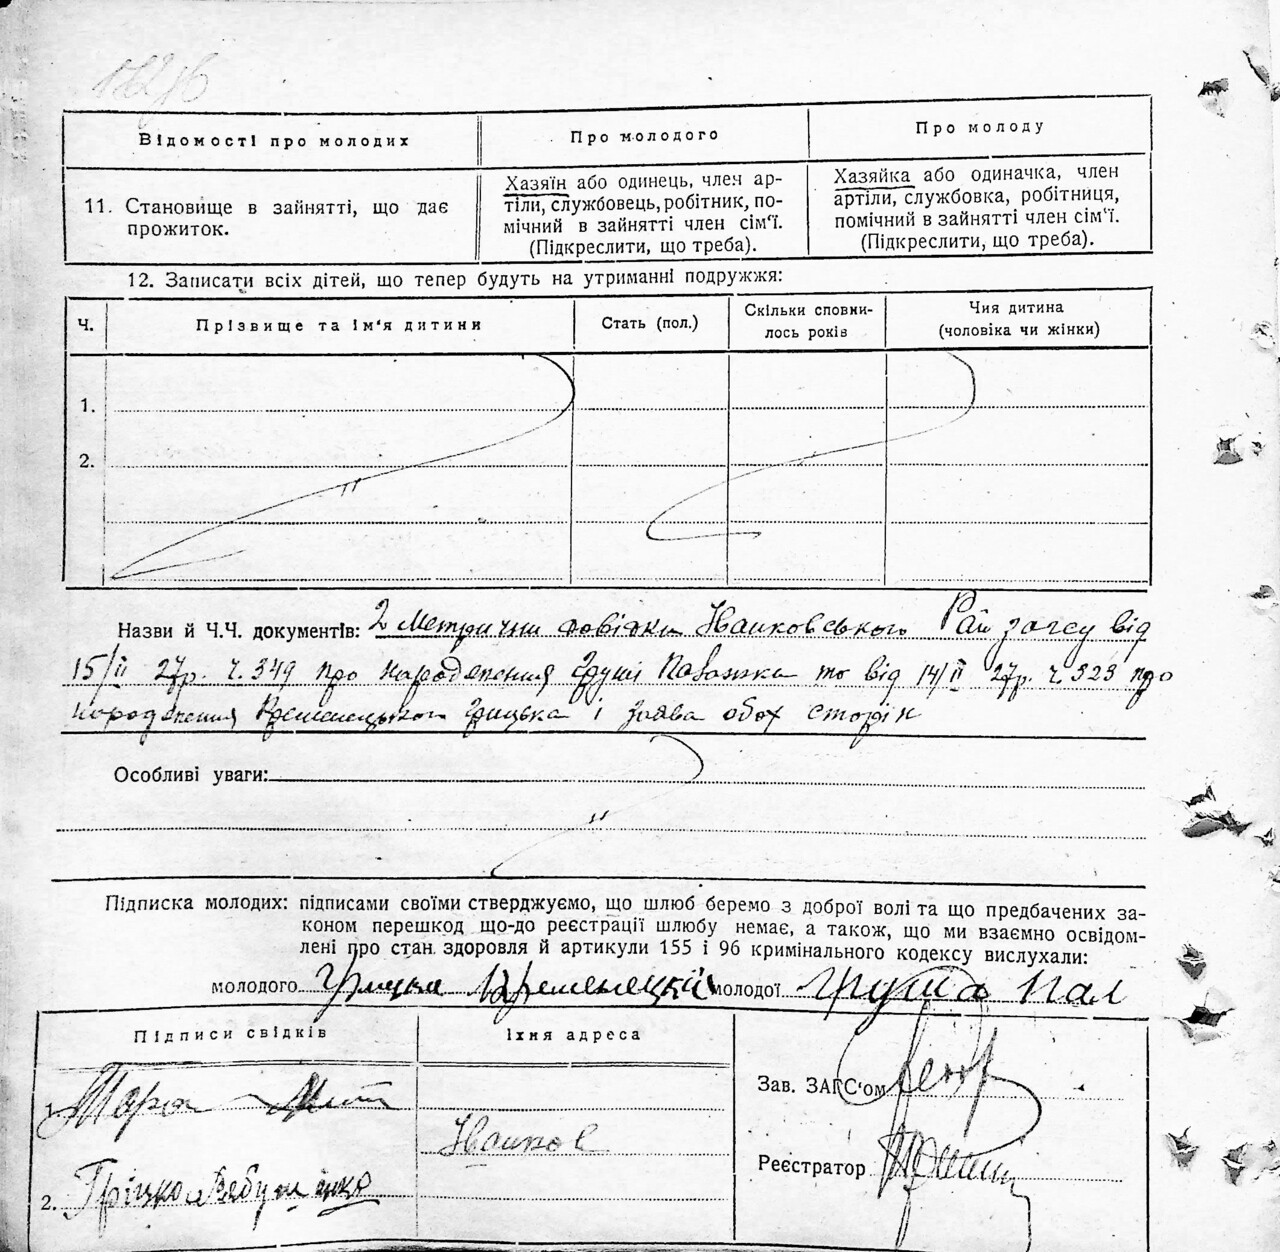 Відомості про молодих
Про молодого
Про молоду
11. Становище в зайнятті, що дає
прожиток.
Хазяїн або одинець, член ар-
тіли, службовець, робітник, по-
мічний в зайнятті член сім'ї.
(Підкреслити, що треба).
Хазяйка або одиначка, член
артіли, службовка, робітниця,
помічний в зайнятті член сім'ї.
(Підкреслити, що треба).
12. Записати всіх дітей, що тепер будуть на утриманні подружжя:
Ч.
Прізвище та ім'я дитини
Стать (пол.)
Скільки сповни-
лось років
Чия дитина
(чоловіка чи жінки)
1.
2.
Назви й Ч.Ч. документів: 2 Метрични довідки Іванковського Рай загсу від
15/II 27р. ч. 349 про народження та від 14/II 27р. ч. 323 про
народження Грицька і заява обох сторін
Особливі уваги:
Підписка молодих: підписами своїми стверджуємо, що шлюб беремо з доброї волі та що предбачених за-
коном перешкод що-до реєстрації шлюбу немає, а також, що ми взаємно освідом-
лені про стан здоровля й артикули 155 і 96 кримінального кодексу вислухали:
молодого Грицько Кременецкий молодої
Підписи свідків
Їхня адреса
1.
Іванков
2. Гріцко
Зав. ЗАГС'ом
Реєстратор